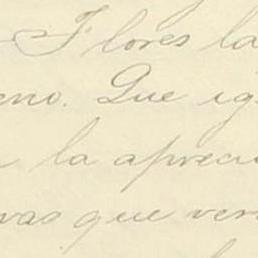 Flores la
eno. Que ig
la apreci
vas que ver